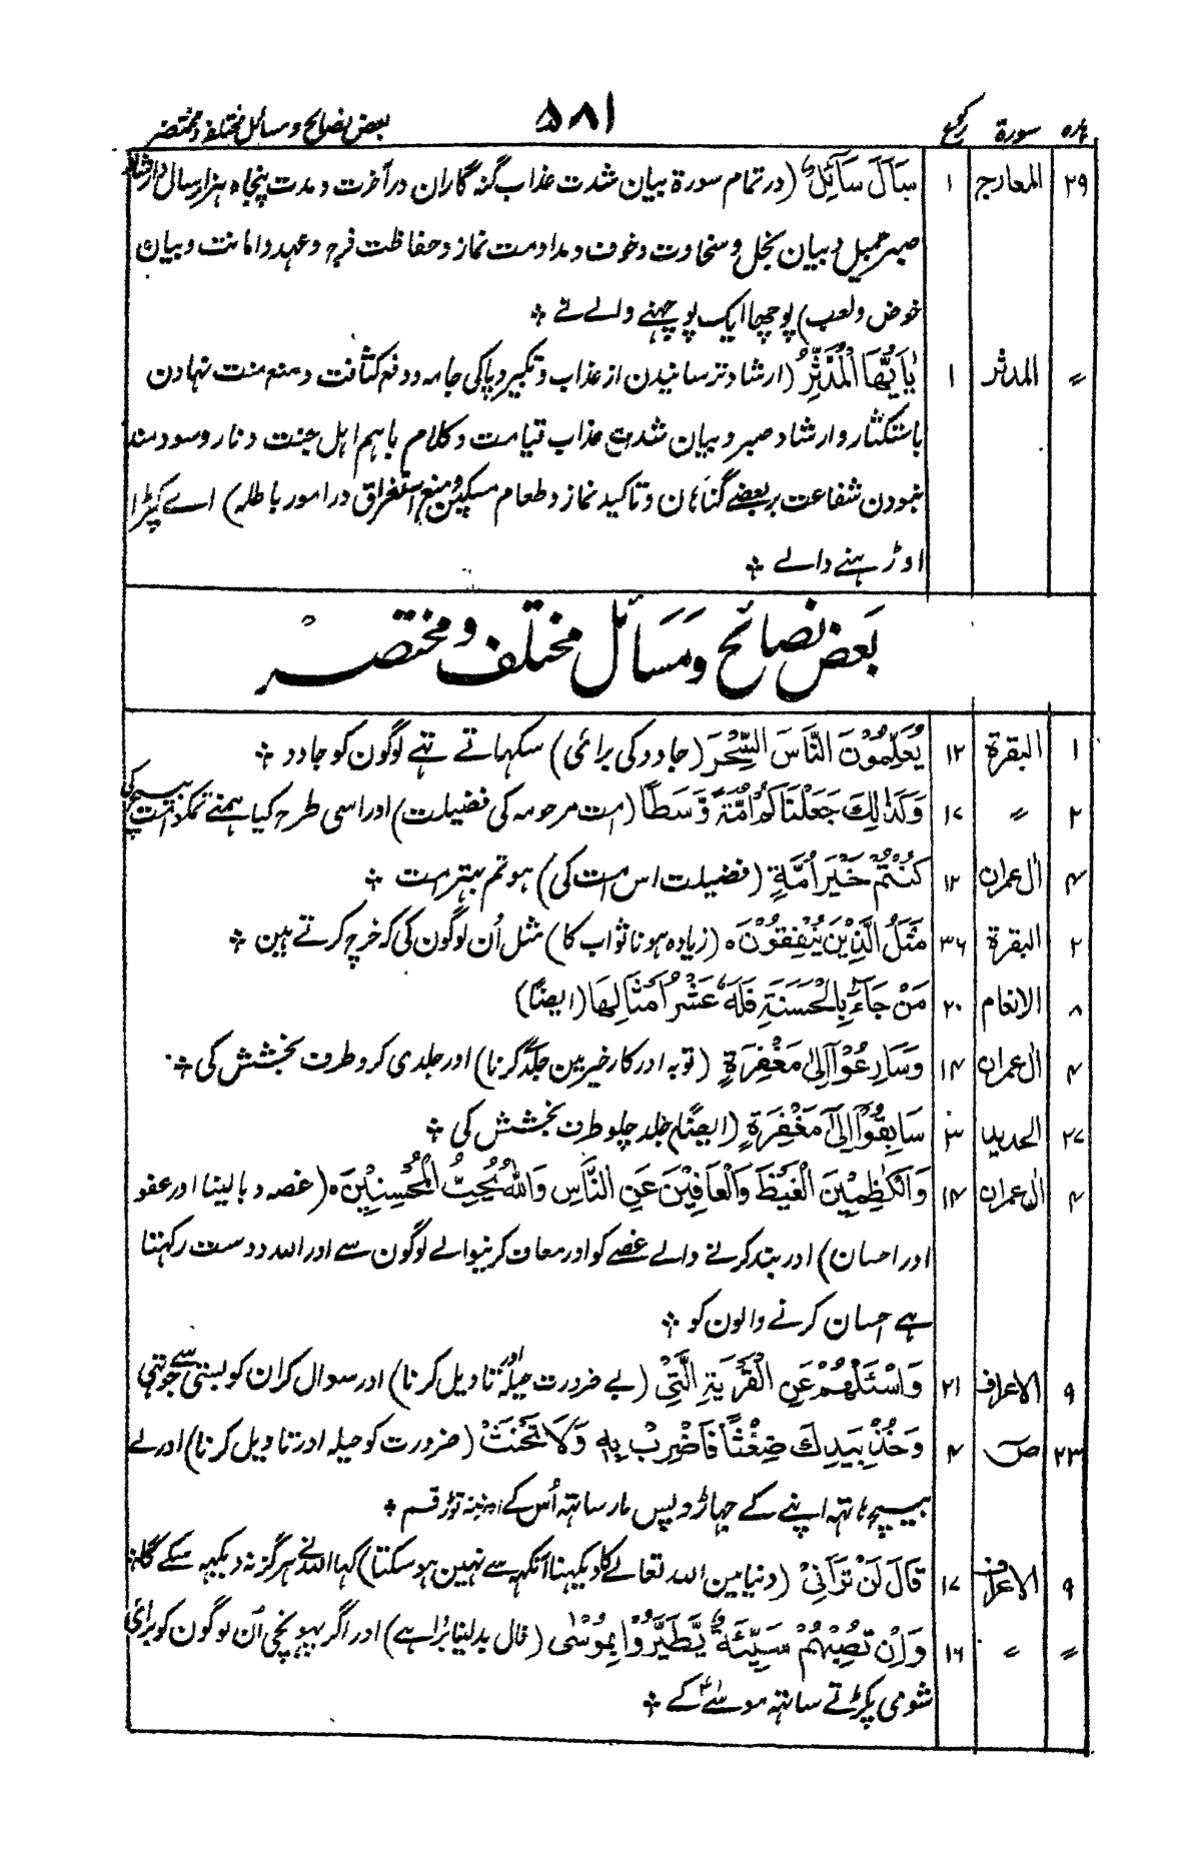 پارہ سورۃ رکوع ۵۸۱ بعض نصائح و مسائل مختلف و مختصر
۲۹ المعارج ۱ سَاَلَ سَآئِلٌ (در تمام سورۃ بیان شدت عذاب گنہ گاران در آخرت و مدت پنجاہ ہزار سال و ارشاد
صبر جمیل و بیان بخل و سخاوت و خوف و مداومت نماز و حفاظت فرج و عہد و امانت و بیان
خوض و لعب) پوچھا ایک پوچہنے والے نے ۞
〃 المدثر ۱ یٰاَیُّهَا الْمُدَّثِّرُ (ارشاد ترسانیدن از عذاب و تکبیر و پاکی جامہ و دفع کثافت و منع منت نہادن
باستکثار و ارشاد صبر و بیان شدت عذاب قیامت و کلام باہم اہل جنت و نار و سود مند
نبودن شفاعت بر بعضے گناہان و تاکید نماز و طعام مسکین و منع استغراق در امور باطلہ) اے کپڑا
اوڑہنے والے ۞
بعض نصائح و مسائل مختلف و مختصر
۱ البقرة ۱۲ یُعَلِّمُوْنَ النَّاسَ السِّحْرَ (جادو کی برائی) سکہاتے تہے لوگون کو جادو ۞
۲ 〃 ۱۷ وَکَذٰلِكَ جَعَلْنَاکُمْ اُمَّةً وَّسَطًا (امت مرحومہ کی فضیلت) اور اسی طرح کیا ہمنے تمکو امت بیچ کی
۴ اٰل عمران ۱۲ کُنْتُمْ خَیْرَ اُمَّةٍ (فضیلت اس امت کی) ہو تم بہتر امت ۞
۲ البقرة ۳۶ مَثَلُ الَّذِیْنَ یُنْفِقُوْنَ ہ (زیادہ ہونا ثواب کا) مثل اُن لوگون کی کہ خرچ کرتے ہین ۞
۸ الانعام ۲۰ مَنْ جَآءَ بِالْحَسَنَةِ فَلَهٗ عَشْرُ اَمْثَالِهَا (ایضًا)
۴ اٰل عمران ۱۴ وَسَارِعُوْٓا اِلٰی مَغْفِرَةٍ (توبہ اور کار خیر مین جلد گرنا) اور جلدی کرو طرف بخشش کی ۞
۲۷ الحدید ۳ سَابِقُوْٓا اِلٰی مَغْفِرَةٍ (ایضًا) جلد چلو طرف بخشش کی ۞
۴ اٰل عمران ۱۴ وَالْکٰظِمِیْنَ الْغَیْظَ وَالْعَافِیْنَ عَنِ النَّاسِ وَاللّٰهُ یُحِبُّ الْمُحْسِنِیْنَ ہ (غصہ دبا لینا اور عفو
اور احسان) اور بند کرنے والے غصے کو اور معاف کرنیوالے لوگون سے اور اللہ دوست رکہتا
ہے احسان کرنے والون کو ۞
۹ الاعراف ۲۱ وَاسْئَلْهُمْ عَنِ الْقَرْیَةِ الَّتِیْ (بے ضرورت حیلہ اور تاویل کرنا) اور سوال کر ان کو بستی سے جو تہی
۲۳ ص ۴ وَخُذْ بِیَدِكَ ضِغْثًا فَاضْرِبْ بِهٖ وَلَا تَحْنَثْ (ضرورت کو حیلہ اور تاویل کرنا) اور لے
بیچ ہاتہہ اپنے کے جہاڑو پس مار ساتہہ اُس کے اور نہ توڑ قسم ۞
۹ الاعراف ۱۷ قَالَ لَنْ تَرَانِیْ (دنیا مین اللہ تعالے کا دیکہنا آنکہہ سے نہین ہو سکتا) کہا اللہ نے ہرگز نہ دیکہہ سکے گا ۞
〃 〃 ۱۶ وَاِنْ تُصِبْهُمْ سَیِّئَةٌ یَّطَّیَّرُوْا بِمُوْسٰی (فال بد لینا برا ہے) اور اگر پہونچی اُن لوگون کو برائی
شومی پکڑتے ساتہہ موسٰے کے ۞